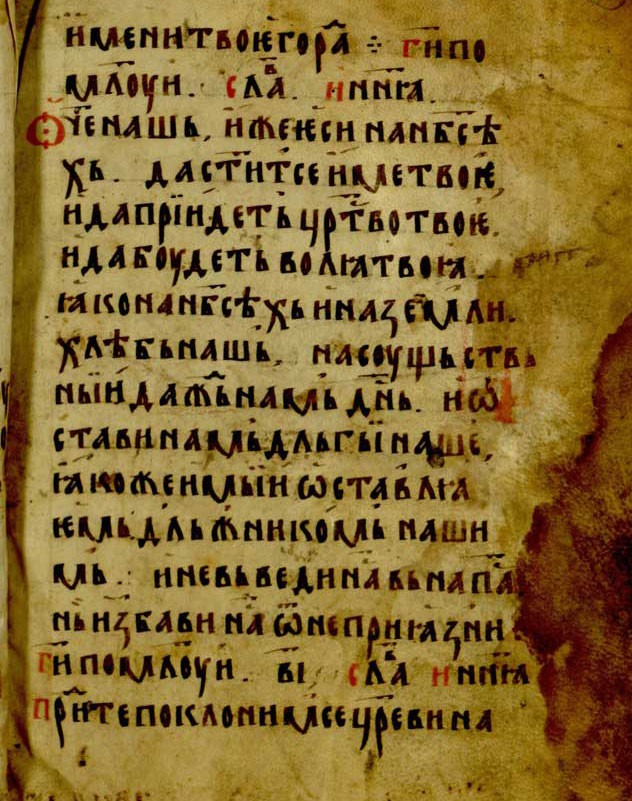 имени твоѥго ра҃ ⁘ г҃и по
млоуи. сла́в. и нн҃ꙗ.
Ѿч҃е нашь, иже ѥси на нб҃сѣ
хь. да ст҃ит се име твоѥ,
и да прїидеть цр҃тво твоѥ.
и да боудеть волꙗ твоꙗ.
ꙗко на нб҃сѣхь и на земли.
хлѣбь нашь, насоущьств
ныи даж҃ь намь дн҃ь. и ѡ
стави намь дльгы наше,
ꙗкоже и мыи ѡставлꙗ
ѥмь дльжникомь наши
мь. и не вьведи на вь напа
нь избави на ѿ неприꙗзни
г҃и помлоуи. в҃і слав҃а и нн҃ꙗ
при҃те поклоним се цр҃еви на